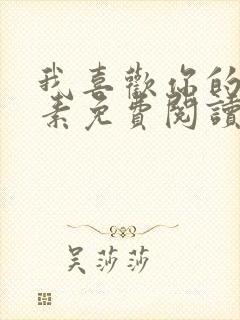 我喜歡你的
素免費閱讀
吳莎莎